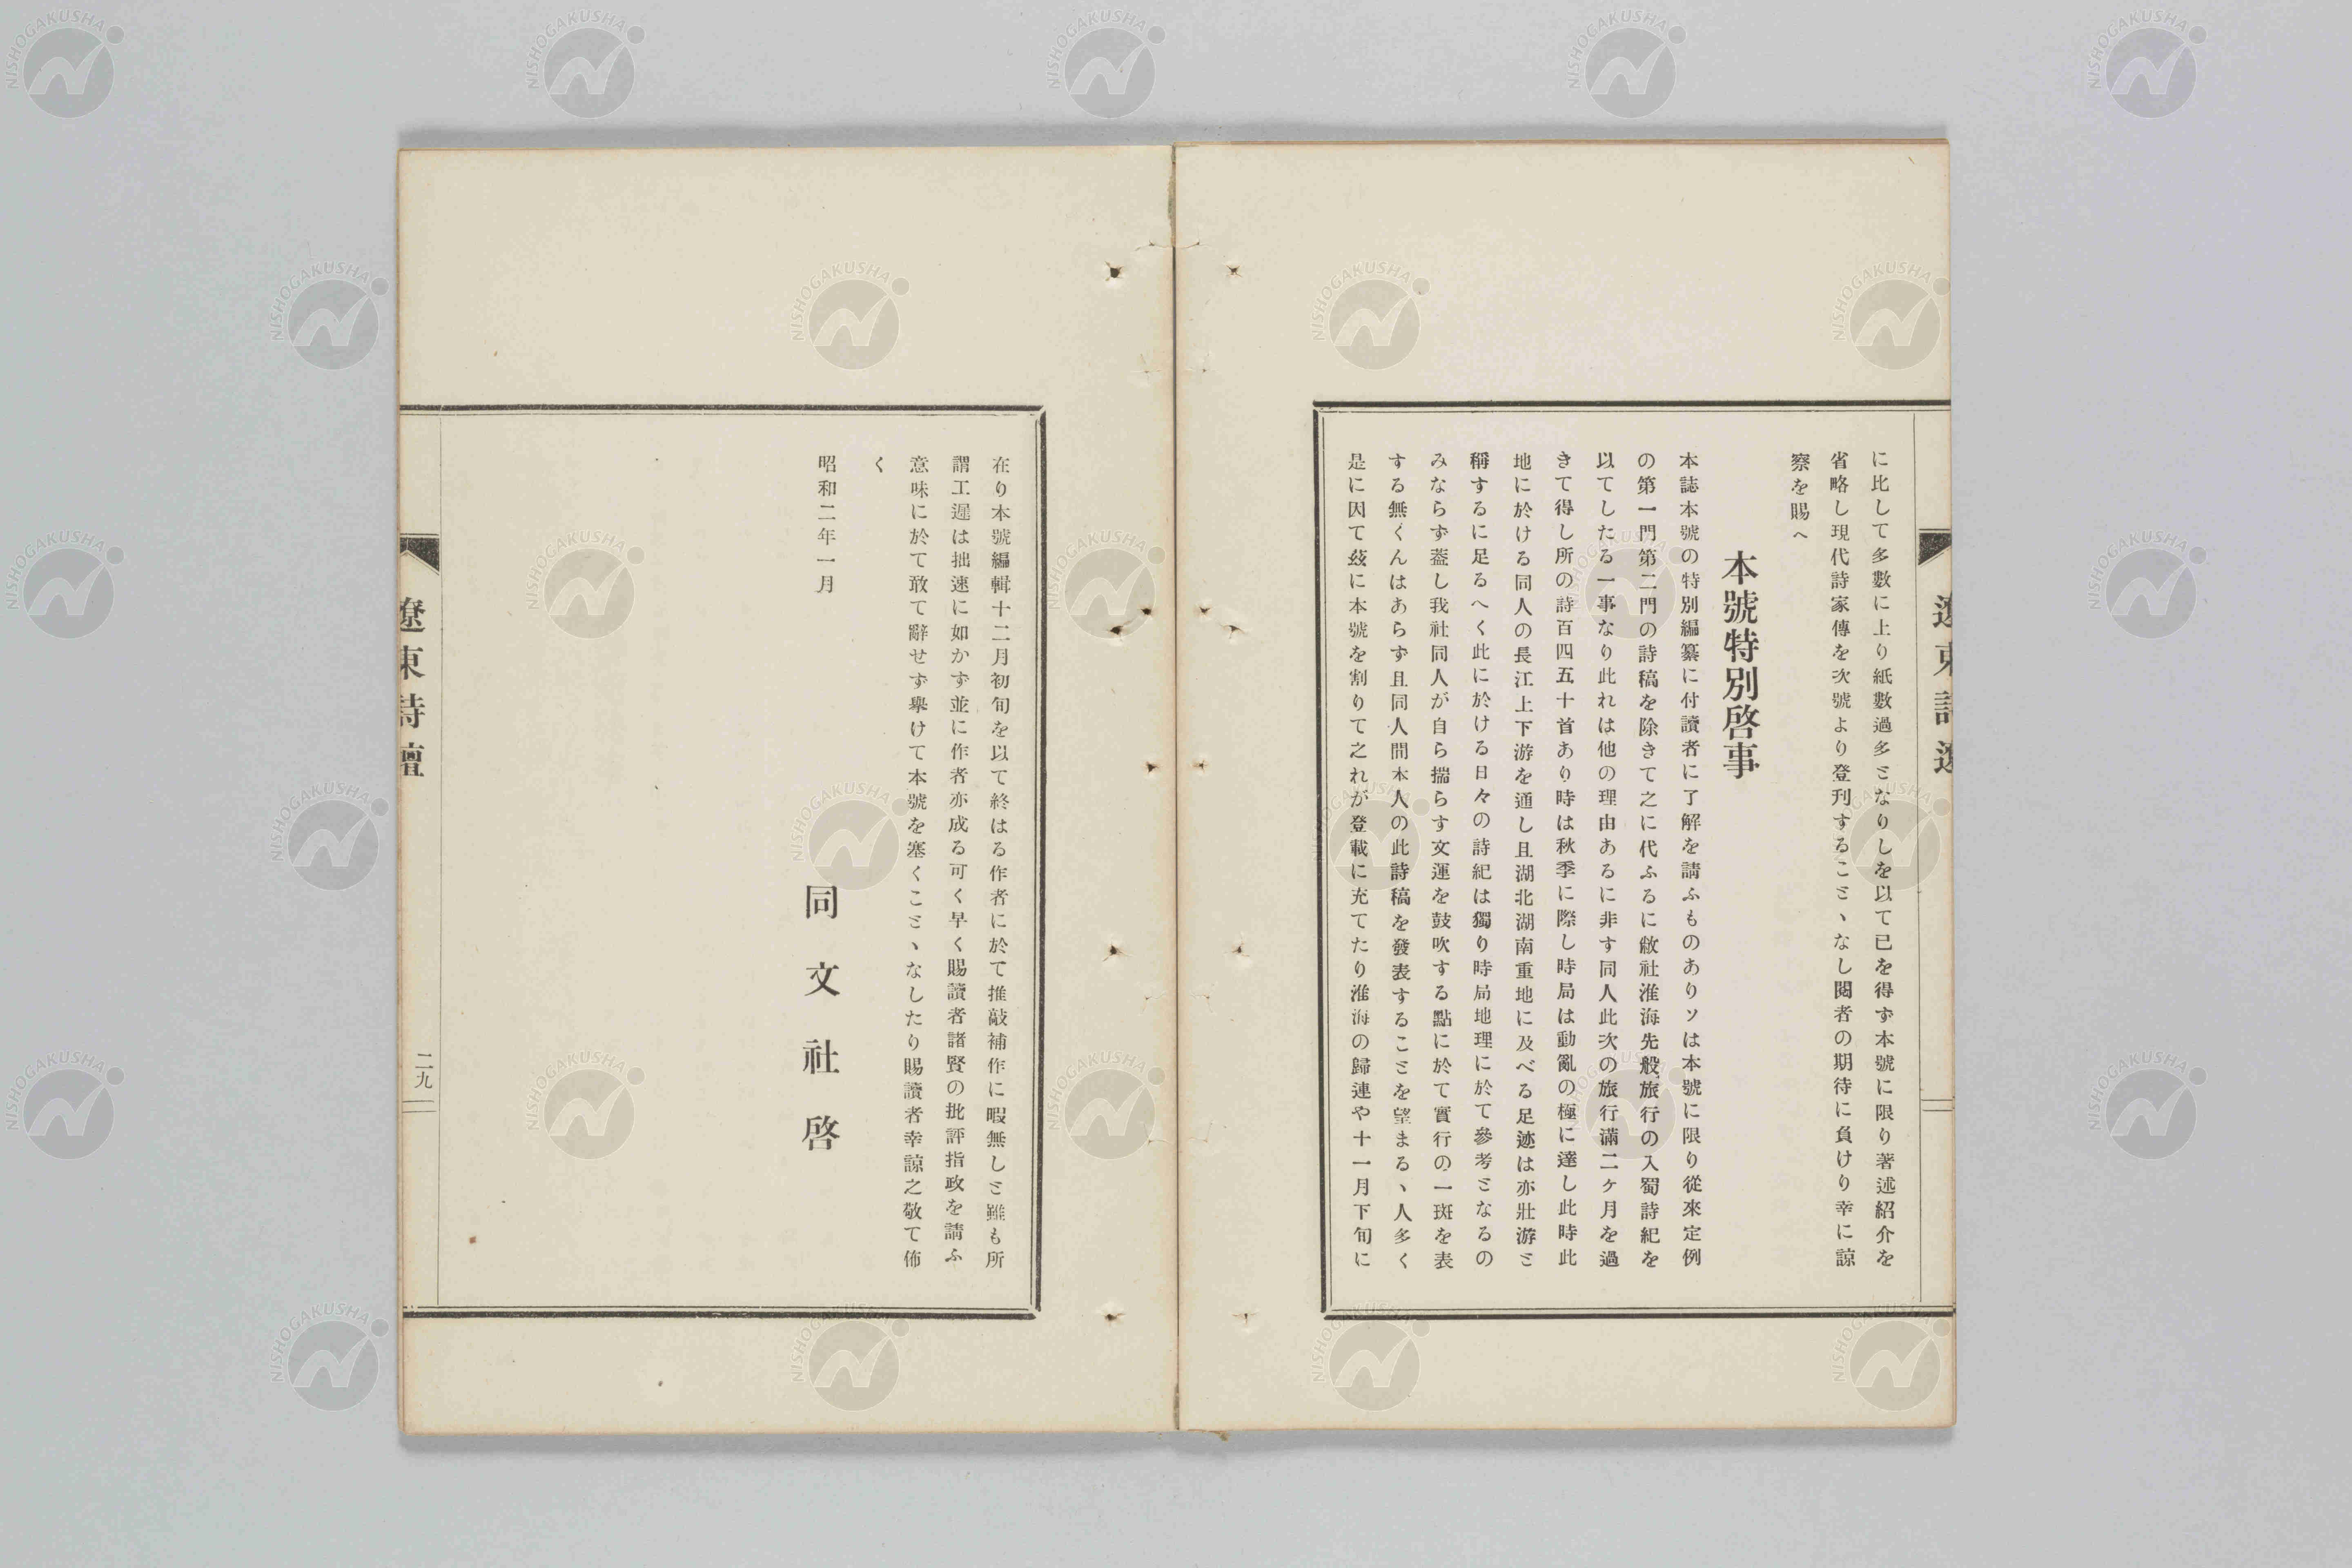 に比して多數に上り紙數過多ミなりしを以て已を得ず本號に限り著述紹介を
省略し現代詩家傳を次號より登刊するこミヽなし閱者の期待に負けり幸に諒
察を賜へ
本號特別啓事
本誌本號の特別編纂に付讀者に了解を請ふものありソは本號に限り從來定例
の第一門第二門の詩稿を除きて之に代ふるに敝社淮海先般旅行の入蜀詩紀を
以てしたる一事なり此れは他の理由あるに非す同人此次の旅行滿二ケ月を過
きて得し所の詩百四五十首あり時は秋季に際し時局は動亂の極に達し此時此
地に於ける同人の長江上下游を通し且湖北湖南重地に及べる足迹は亦壯游ミ
稱するに足るへく此に於ける日々の詩紀は獨り時局地理に於て參考ミなるの
みならず蓋し我社同人が自ら揣らす文運を鼓吹する點に於て實行の一斑を表
する無くんはあらず且同人間本人の此詩稿を發表するこミを望まるヽ人多く
是に因て茲に本號を割りて之れが登載に充てたり淮海の歸連や十一月下旬に
遼東詩壇
二九
在り本號編輯十二月初旬を以て終はる作者に於て推敲補作に暇無しミ雖も所
謂工遲は拙速に如かず並に作者亦成る可く早く賜讀者諸賢の批評指政を請ふ
意味に於て敢て辭せず擧けて本號を塞くこミヽなしたり賜讀者幸諒之敬て佈
く
昭和二年一月
同文社啓